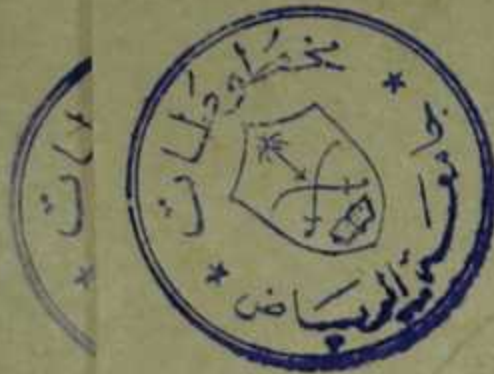 مخطوطات
جامعة الرياض
ات